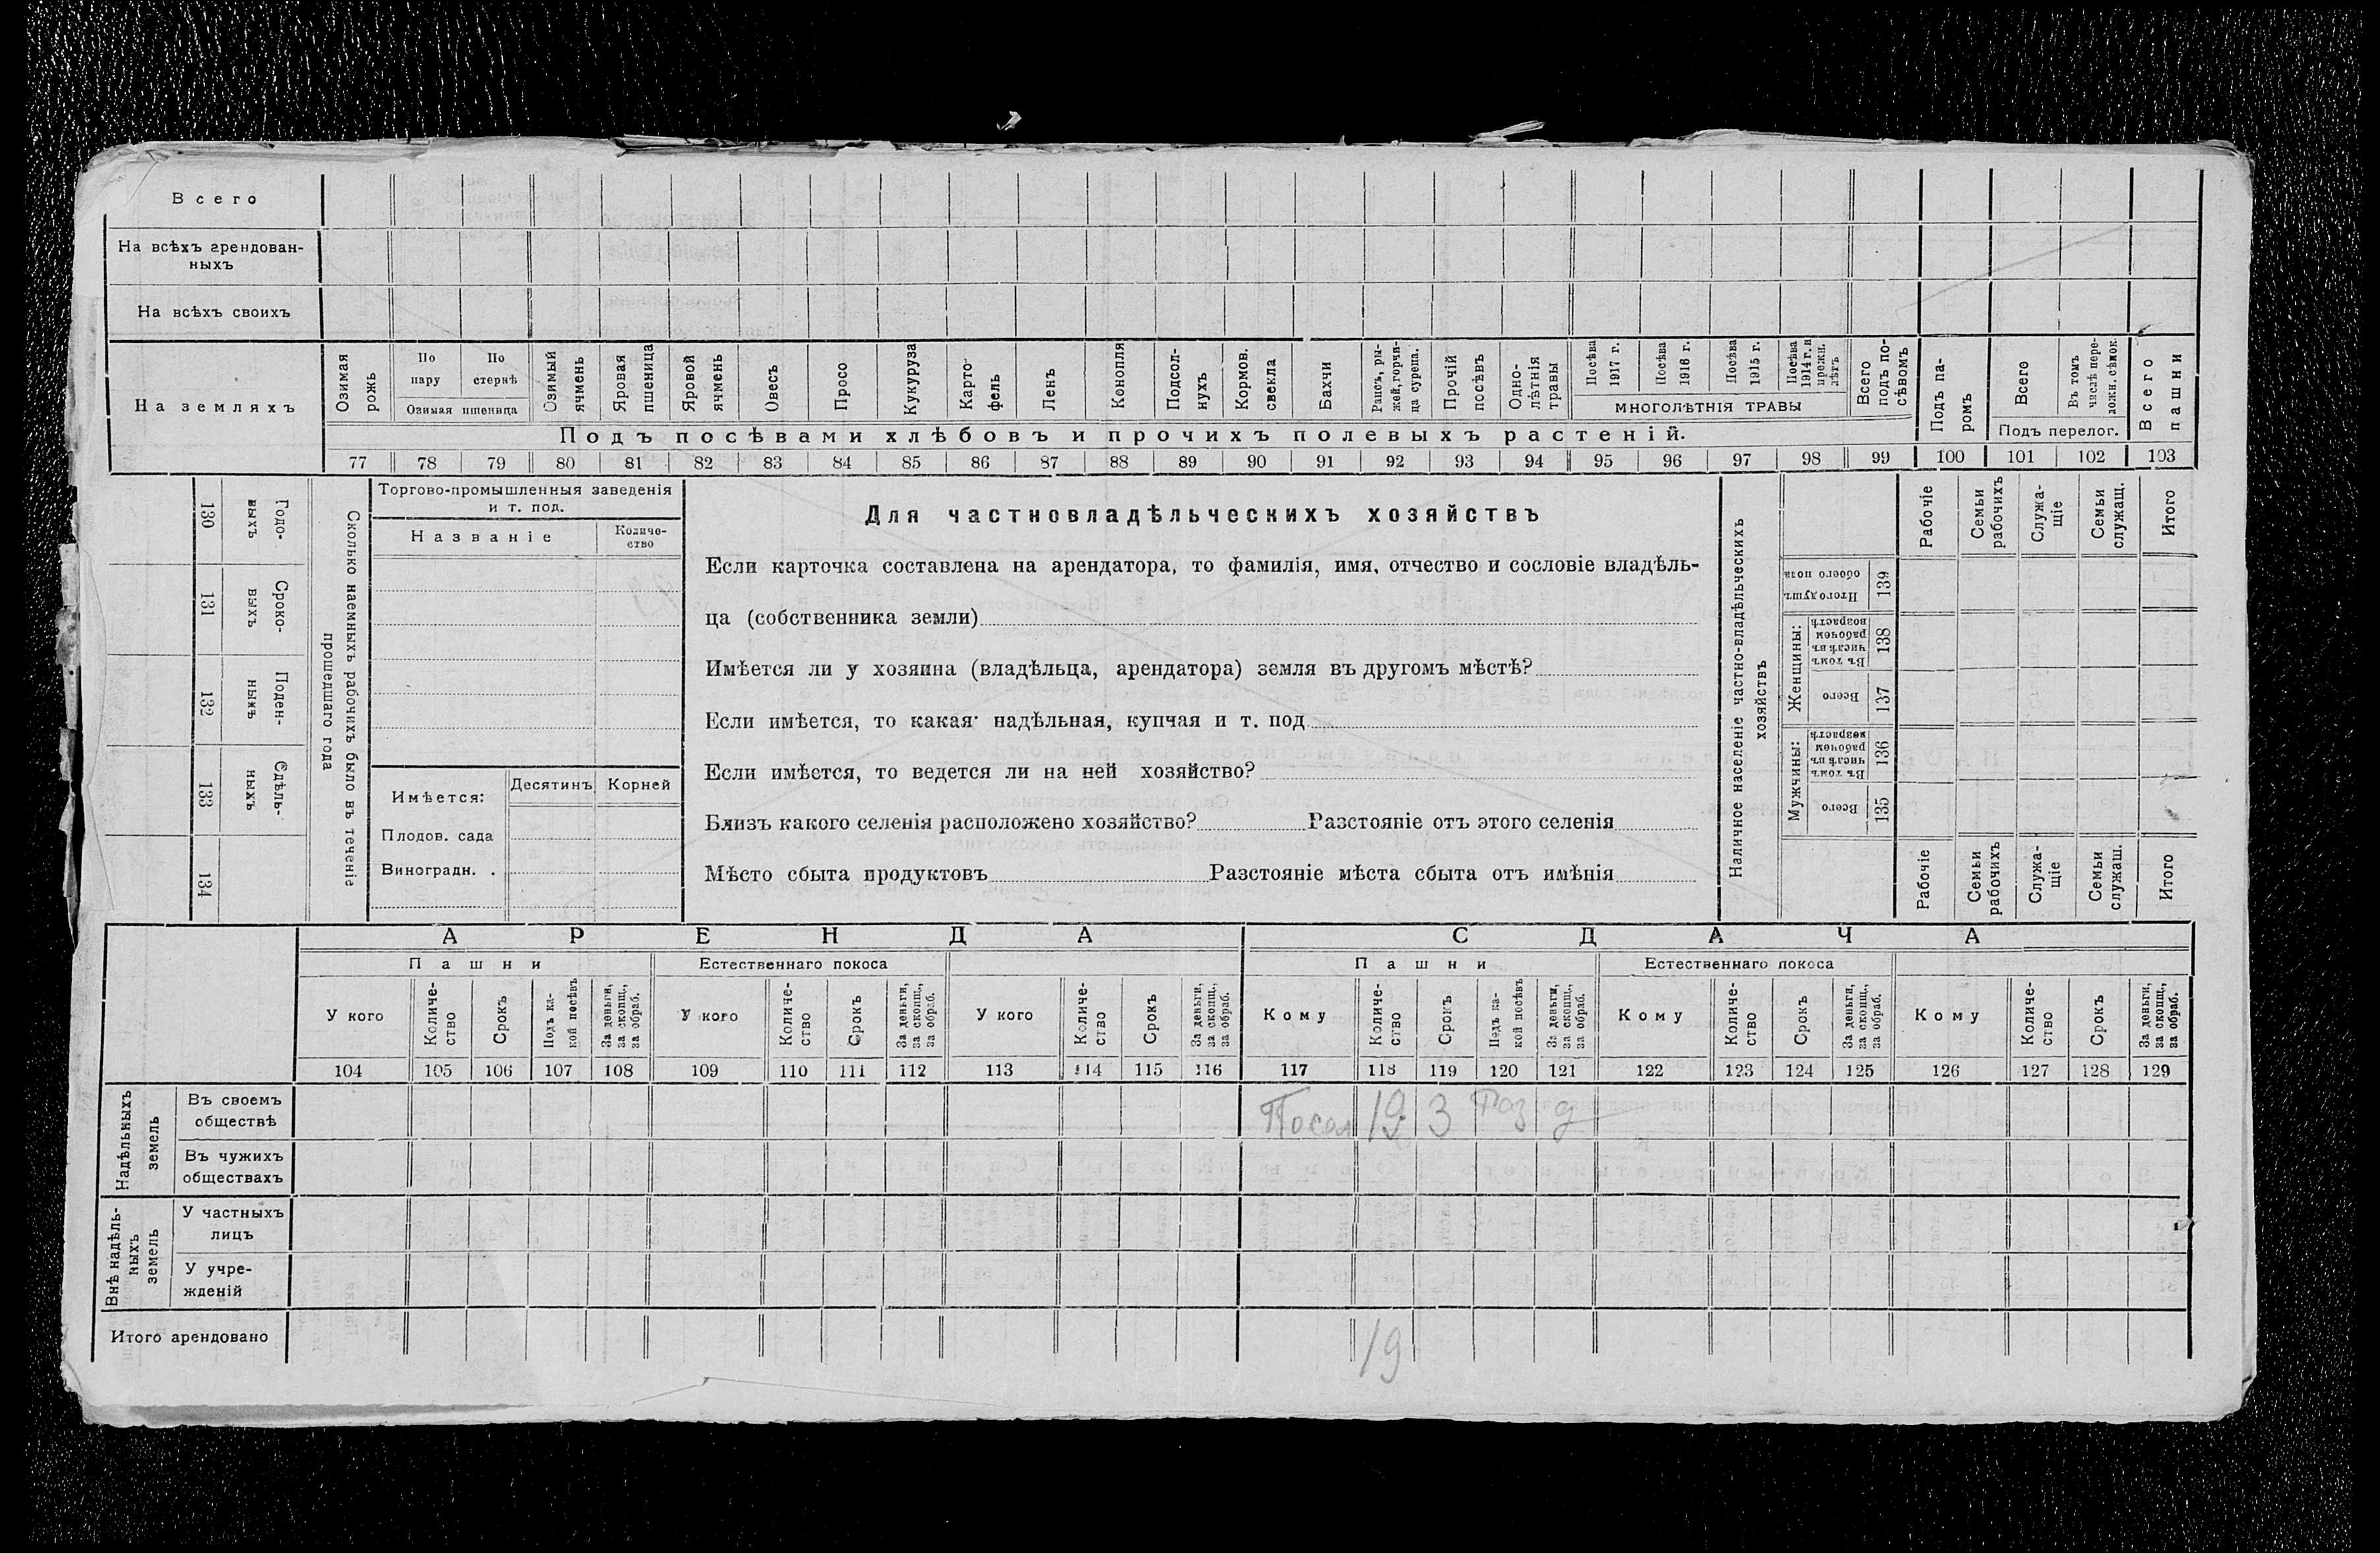 Всего
На всѣхъ арендован-
ныхъ
На всѣхъ своихъ
На земляхъ
Озимая рожь
По пару
По стернѣ
Озимая пшеница
Озимый ячмень
Яровая пшеница
Яровой ячмень
Овесъ
Просо
Кукуруза
Карто-
фель
Ленъ
Конопля
Подсол-
нухъ
Кормов. свекла
Бахчи
Рапсъ, ры-
жей, горчи-
ца сурепа.
Прочій посѣвъ
Одно-
лѣтнія травы
Посѣва 1917 г.
Посѣва 1916 г.
Посѣва 1915 г.
Посѣва 1914 г. и прежн. лѣтъ
МНОГОЛѢТНІЯ ТРАВЫ
Всего подъ по-
сѣвомъ
Подъ па-
ромъ
Всего
Въ томъ числѣ пере-
ложн. сѣнок.
Подъ перелог.
Всего пашни
Подъ посѣвами хлѣбовъ и прочихъ полевыхъ растеній.
77 78 79 80 81 82 83 84 85 86 87 88 89 90 91 92 93 94 95 96 97 98 99 100 101 102 103
Годо-
выхъ
130
Сроко-
выхъ
131
Поден-
ныхъ
132
Сдѣль-
ныхъ
133
134
Сколько наемныхъ рабочихъ было въ теченіе
прошедшаго года
Торгово-промышленныя заведенія
и т. под.
Названіе
Количе-
ство
Имѣется:
Десятинъ
Корней
Плодов. сада
Виноградн. .
Для частновладѣльческихъ хозяйствъ
Если карточка составлена на арендатора, то фамилія, имя, отчество и сословіе владѣль-
ца (собственника земли)
Имѣется ли у хозяина (владѣльца, арендатора) земля въ другомъ мѣстѣ?
Если имѣется, то какая: надѣльная, купчая и т. под
Если имѣется, то ведется ли на ней хозяйство?
Близъ какого селенія расположено хозяйство? Разстояніе отъ этого селенія
Мѣсто сбыта продуктовъ Разстояніе мѣста сбыта отъ имѣнія
Наличное населеніе частно-владѣльческихъ
хозяйствъ
Рабочіе
Семьи рабочихъ
Служа-
щіе
Семьи служащ.
Итого
Итого душъ обоего пола
139
Женщины:
Въ томъ числѣ въ рабочем возрастѣ
138
Всего
137
Мужчины:
Въ томъ числѣ въ рабочем возрастѣ
136
Всего
135
Рабочіе
Семьи рабочихъ
Служа-
щіе
Семьи служащ.
Итого
АРЕНДА
СДАЧА
Пашни
Естественнаго покоса
Пашни
Естественнаго покоса
У кого
Количе-
ство
Срокъ
Подъ ка-
кой посѣвъ
За деньги, за скопщ., за обраб.
У кого
Количе-
ство
Срокъ
За деньги, за скопщ., за обраб.
У кого
Количе-
ство
Срокъ
За деньги, за скопщ., за обраб.
Кому
Количе-
ство
Срокъ
Подъ ка-
кой посѣвъ
За деньги, за скопщ., за обраб.
Кому
Количе-
ство
Срокъ
За деньги, за скопщ., за обраб.
Кому
Количе-
ство
Срокъ
За деньги, за скопщ., за обраб.
104 105 106 107 108 109 110 111 112 113 114 115 116 117 118 119 120 121 122 123 124 125 126 127 128 129
Надѣльныхъ земель
Въ своемъ
обществѣ
Посел 19 3 Раз д
Въ чужихъ
обществахъ
Внѣ надѣль-
ныхъ земель
У частныхъ
лицъ
У учре-
жденій
Итого арендовано
19